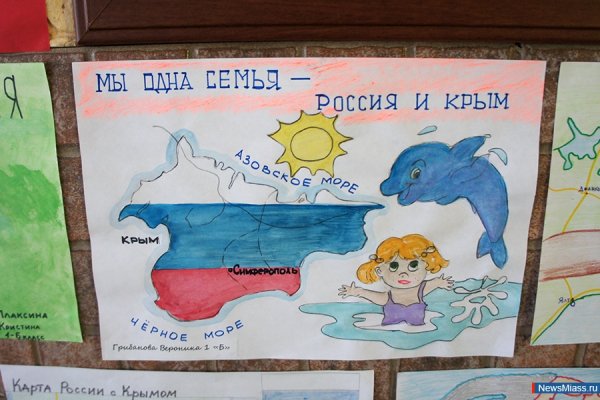 МЫ ОДНА СЕМЬЯ –
РОССИЯ И КРЫМ
Я
АЗОВСКОЕ МОРЕ
КРЫМ
СИМФЕРОПОЛЬ
ЧЁРНОЕ МОРЕ
Грибанова Вероника 1 «Б»
Плаксина
Кристина
1-Б класс
Карта России с Крымом
Джанко
Ялт
NewsMiass.ru